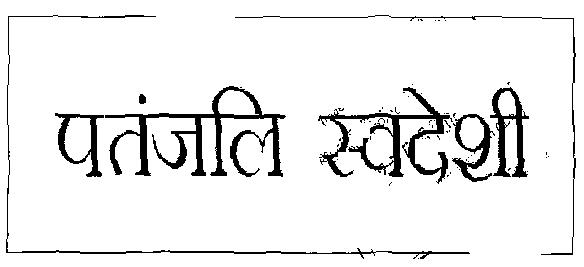 पतंजलि स्वदेशी